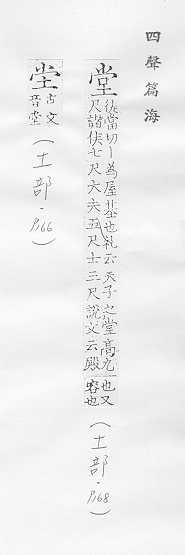 四聲篇海
堂 從當切丨為屋基也礼云天子之堂高九
尺諸侯七尺大夫五尺士三尺說文云殿
也又
容也
(土部·P.68)
坣 古文
音堂
(土部·P.66)